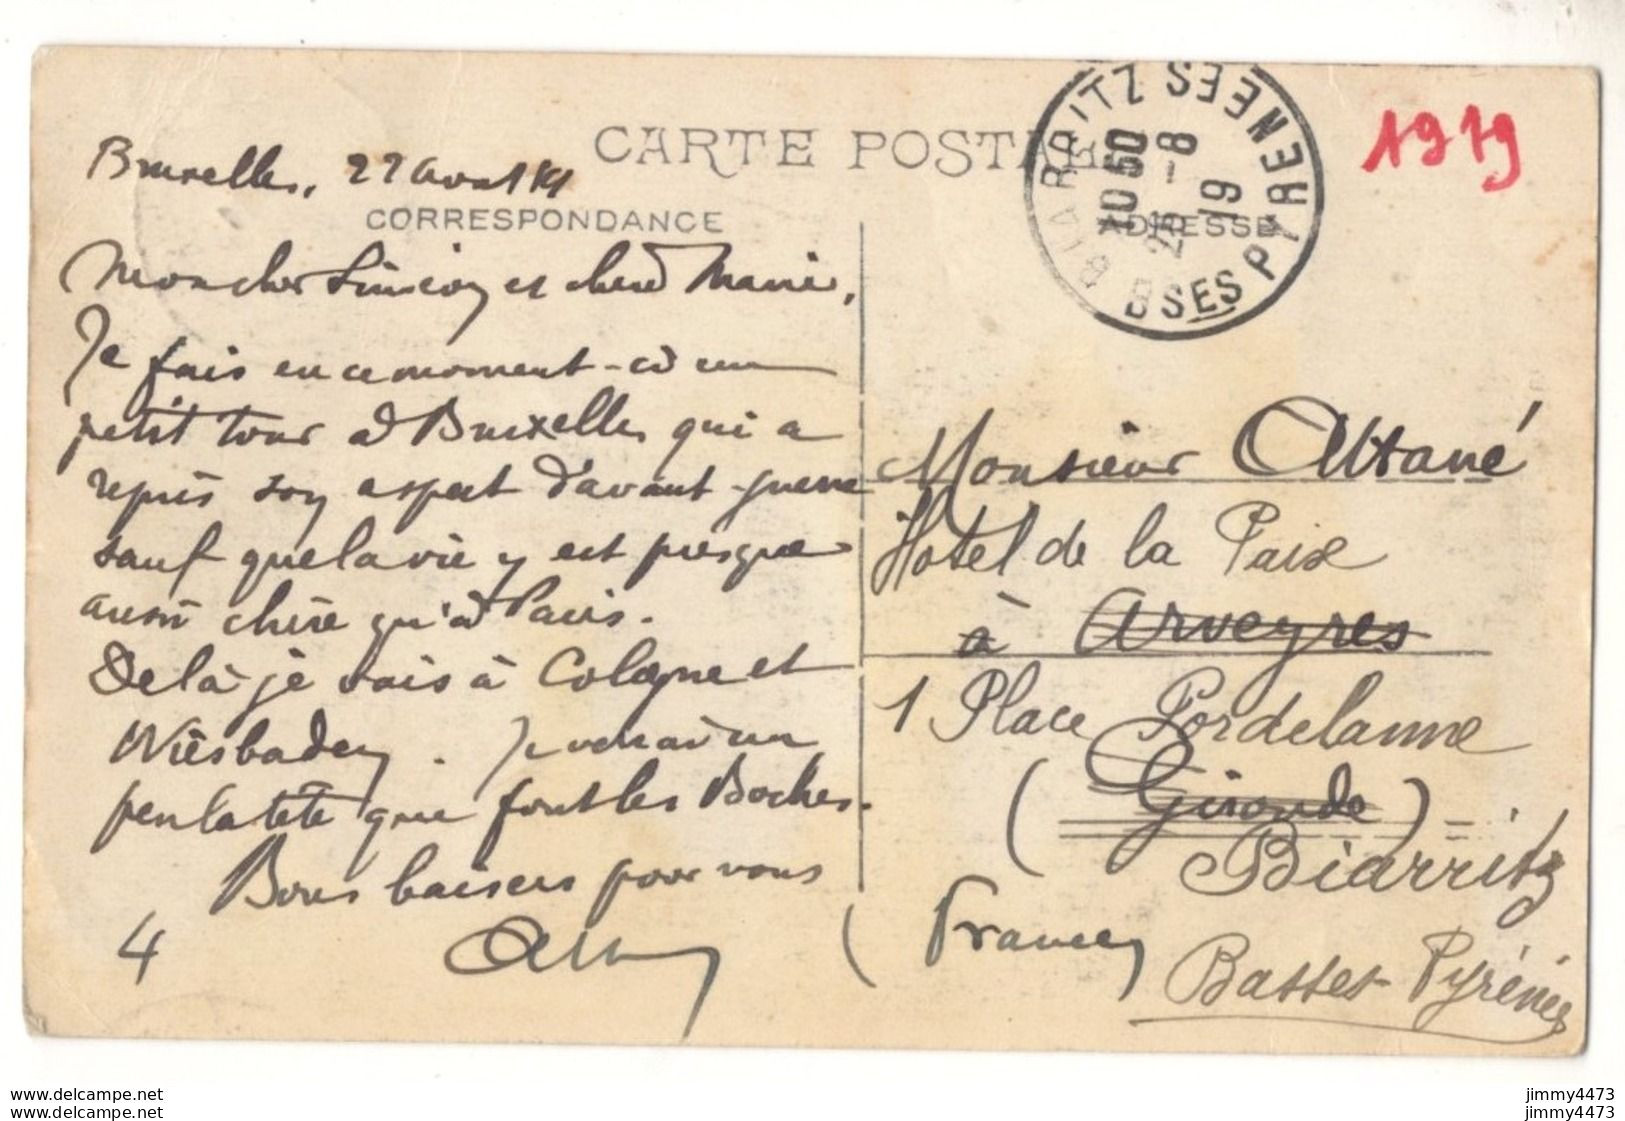 CARTE POSTALE
1919
Bruxelles, 22 aout 19
CORRESPONDANCE
ADRESSE
BIARRITZ
BSES PYRENEES
10 50
25 - 8
19
Mon cher et chere Marie,
Je fais en ce moment-ci un
petit tour à Bruxelles qui a
repris son aspect d'avant-guerre
sauf que la vie y est presque
aussi chère qu'à Paris.
De là je vais à Cologne et
Wiesbaden. Je verrai un
peu la tête que font les Boches.
Bons baisers pour vous
4
Monsieur Altané
Hotel de la Paix
à Arveyres
1 Place Pordelanne
(Gironde)
Biarritz
(France)
Basses-Pyrénées
jimmy4473
ebay.com
jimmy4473
ebay.com